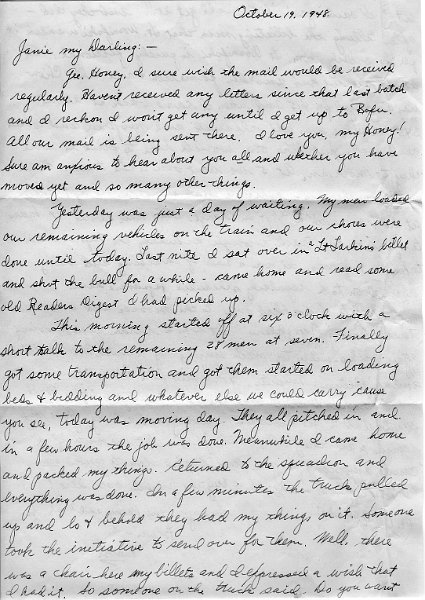 October 19, 1948.
Janie my Darling:-
Gee Honey, I sure wish the mail would be received
regularly. Havent received any letters since that last batch
and I reckon I wont get any until I get up to Bofu.
All our mail is being sent there. I love you, my Honey!
Sure am anxious to hear about you all and whether you have
moved yet and so many other things.
Yesterday was just a day of waiting. My men loaded
our remaining vehicles on the train and our chores were
done until today. Last nite I sat over in Lt Larkins billet
and shot the bull for a while - came home and read some
old Readers Digest I had picked up.
This morning started off at six o'clock with a
short talk to the remaining 28 men at seven. Finally
got some transportation and got them started on loading
beds & bedding and whatever else we could carry 'cause
you see, today was moving day. They all pitched in and
in a few hours the job was done. Meanwhile I came home
and packed my things. Returned to the squadron and
everything was done. In a few minutes the truck pulled
up and lo & behold they had my things on it. Someone
took the initiative to send over for them. Well, there
was a chair here my billets and I expressed a wish that
I had it. So someone on the truck said, Do you want